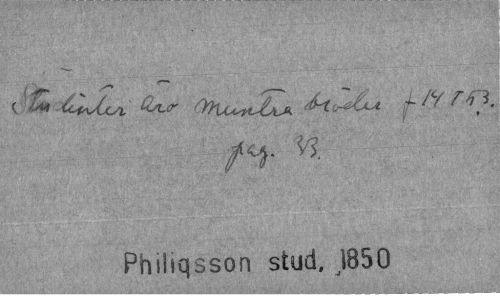 Studenter äro muntra bröder
pag. 33.
Philiqsson stud, 1850